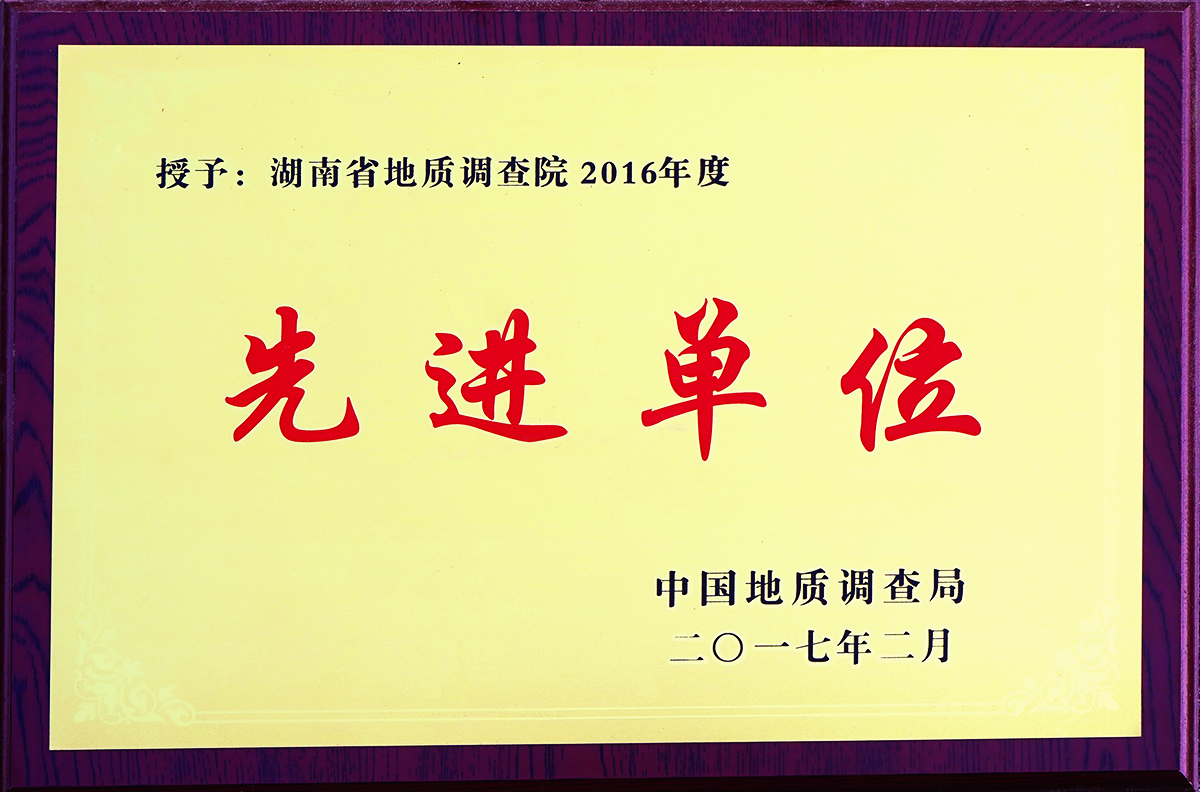 授予：湖南省地质调查院 2016年度
先进单位
中国地质调查局
二〇一七年二月